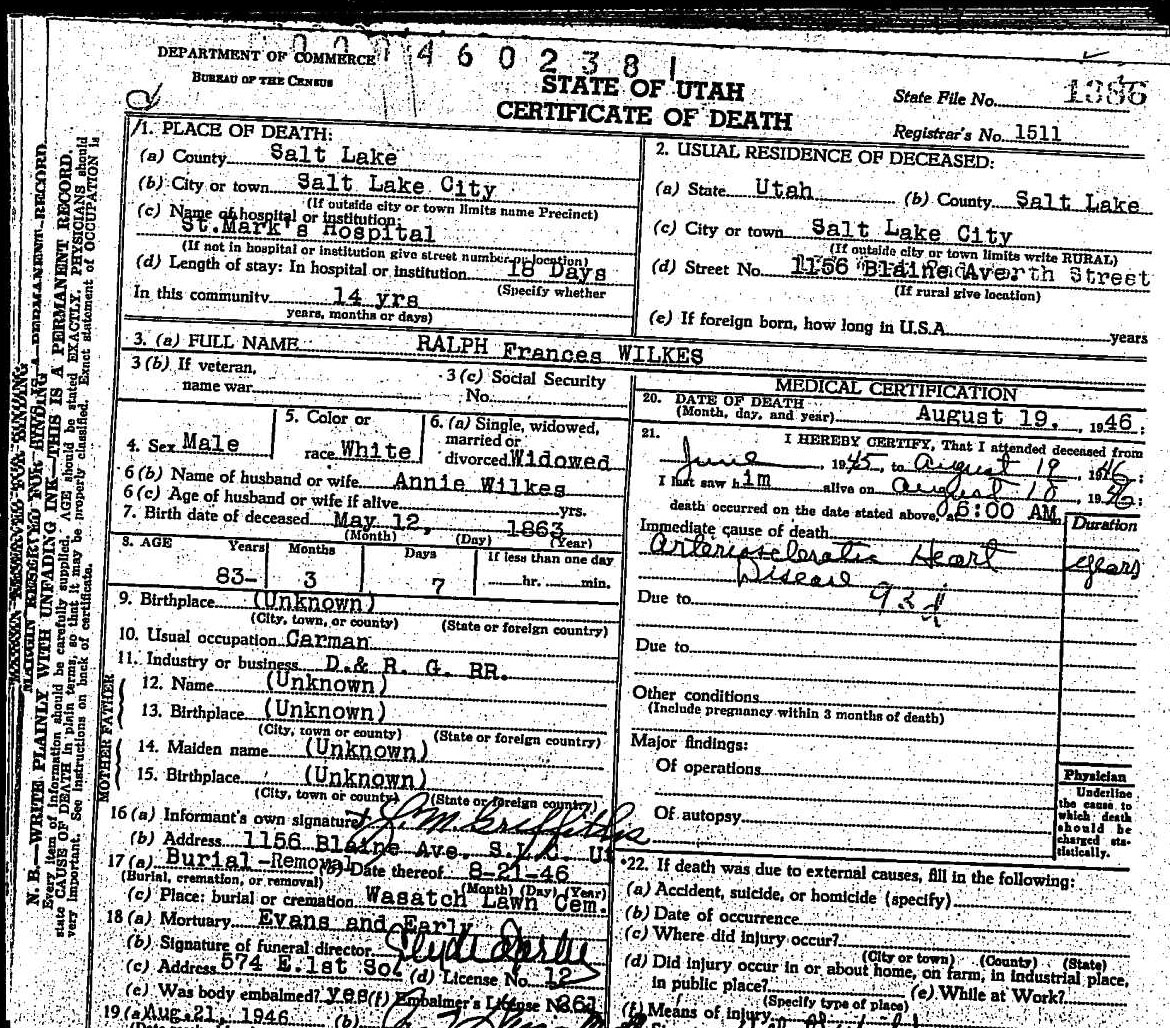 DEPARTMENT OF COMMERCE
BUREAU OF THE CENSUS
0004602381
STATE OF UTAH
CERTIFICATE OF DEATH
State File No. 1386
Registrar's No. 1511
1. PLACE OF DEATH:
(a) County Salt Lake
(b) City or town Salt Lake City
(If outside city or town limits name Precinct)
(c) Name of hospital or institution:
St.Mark's Hospital
(If not in hospital or institution give street number or location)
(d) Length of stay: In hospital or institution 18 Days
(Specify whether
In this community 14 yrs
years, months or days)
2. USUAL RESIDENCE OF DECEASED:
(a) State Utah (b) County Salt Lake
(c) City or town Salt Lake City
(If outside city or town limits write RURAL)
(d) Street No. 1156 Blaine Ave. Street
(If rural give location)
(e) If foreign born, how long in U.S.A. years
3. (a) FULL NAME RALPH Frances WILKES
3 (b) If veteran,
name war
3 (c) Social Security
No.
4. Sex Male
5. Color or
race White
6. (a) Single, widowed,
married or
divorced Widowed
6 (b) Name of husband or wife Annie Wilkes
6 (c) Age of husband or wife if alive yrs.
7. Birth date of deceased May 12, 1863
(Month) (Day) (Year)
8. AGE Years Months Days If less than one day
83- 3 7 hr. min.
9. Birthplace (Unknown)
(City, town, or county) (State or foreign country)
10. Usual occupation Carman
11. Industry or business D.& R. G. RR.
FATHER
12. Name (Unknown)
13. Birthplace (Unknown)
(City, town or county) (State or foreign country)
MOTHER
14. Maiden name (Unknown)
15. Birthplace (Unknown)
(City, town or county) (State or foreign country)
16 (a) Informant's own signature J. M. Griffiths
(b) Address 1156 Blaine Ave. S.L.C. Ut
17 (a) Burial-Removal (b) Date thereof 8-21-46
(Burial, cremation, or removal) (Month) (Day) (Year)
(c) Place: burial or cremation Wasatch Lawn Cem.
18 (a) Mortuary Evans and Early
(b) Signature of funeral director
(c) Address 574 E.1st So. (d) License No. 12
(e) Was body embalmed? yes (f) Embalmer's License No. 261
19 (a) Aug.21, 1946 (b)
MEDICAL CERTIFICATION
20. DATE OF DEATH
(Month, day, and year) August 19, 1946
21. I HEREBY CERTIFY, That I attended deceased from
June, 1945, to August 19, 1946:
I last saw him alive on August 18, 1946:
death occurred on the date stated above, at 6:00 AM m.
Duration
Immediate cause of death
Arteriosclerotic Heart years
Disease
Due to
Due to
Other conditions
(Include pregnancy within 3 months of death)
Major findings:
Of operations
Of autopsy
Physician
Underline
the cause to
which death
should be
charged sta-
tistically.
*22. If death was due to external causes, fill in the following:
(a) Accident, suicide, or homicide (specify)
(b) Date of occurrence
(c) Where did injury occur?
(City or town) (County) (State)
(d) Did injury occur in or about home, on farm, in industrial place,
in public place? (e) While at Work?
(Specify type of place)
(f) Means of injury
MARGIN RESERVED FOR BINDING
N. B.—WRITE PLAINLY WITH UNFADING INK—THIS IS A PERMANENT RECORD.
Every item of information should be carefully supplied. AGE should be stated EXACTLY. PHYSICIANS should
state CAUSE OF DEATH in plain terms, so that it may be properly classified. Exact statement of OCCUPATION is
very important. See instructions on back of certificate.